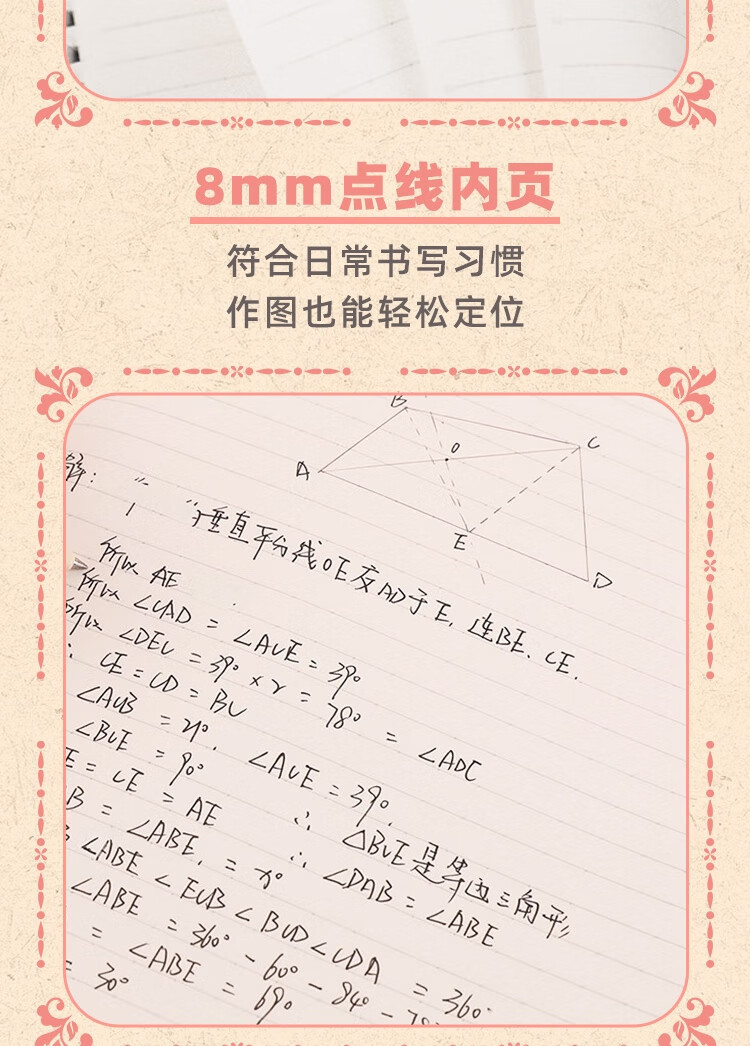 8mm点线内页
符合日常书写习惯
作图也能轻松定位
B
C
O
A
E
D
解:
垂直平分线OE交AD于E,连BE、CE.
所以 AE
所以 ∠CAD = ∠ACE = 39°
所以 ∠DEC = 39° × 2 = 78° = ∠ADC
∴ CE = CD = BC
∠ACB = 21°. ∠ACE = 39°.
∠BCE = 90° ∴ △BCE是等边三角形
E = CE = AE ∴ ∠DAB = ∠ABE
B = ∠ABE. =
∠ABE < ECB < BCD < CDA = 360°
∠ABE = 360° - 60° - 84° - 78
= ∠ABE = 69°
= 30°